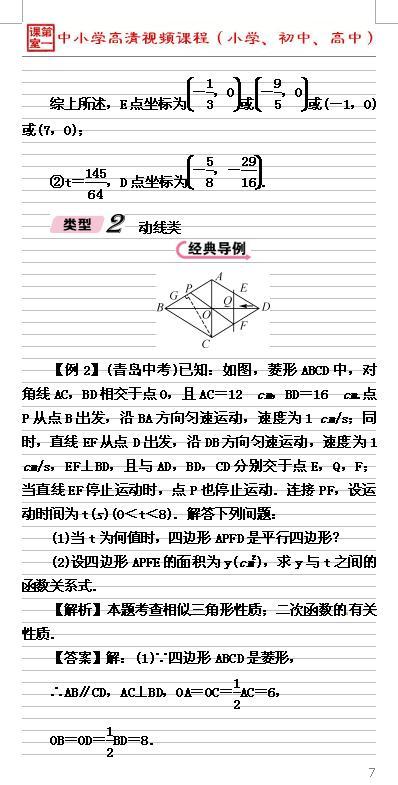 课第
室一 中小学高清视频课程（小学、初中、高中）
综上所述，E点坐标为(-1/3，0)或(-9/5，0)或(-1，0)
或(7，0)；
②t=145/64，D点坐标为(-5/8，-29/16).
类型2 动线类
经典导例
A
G P E
B Q D
O
F
C
【例2】(青岛中考)已知：如图，菱形ABCD中，对
角线AC，BD相交于点O，且AC=12 cm，BD=16 cm.点
P从点B出发，沿BA方向匀速运动，速度为1 cm/s；同
时，直线EF从点D出发，沿DB方向匀速运动，速度为1
cm/s，EF⊥BD，且与AD，BD，CD分别交于点E，Q，F；
当直线EF停止运动时，点P也停止运动．连接PF，设运
动时间为t(s)(0＜t＜8)．解答下列问题：
(1)当t为何值时，四边形APFD是平行四边形？
(2)设四边形APFE的面积为y(cm²)，求y与t之间的
函数关系式．
【解析】本题考查相似三角形性质；二次函数的有关
性质．
【答案】解：(1)∵四边形ABCD是菱形，
∴AB∥CD，AC⊥BD，OA=OC=1/2AC=6，
OB=OD=1/2BD=8．
7